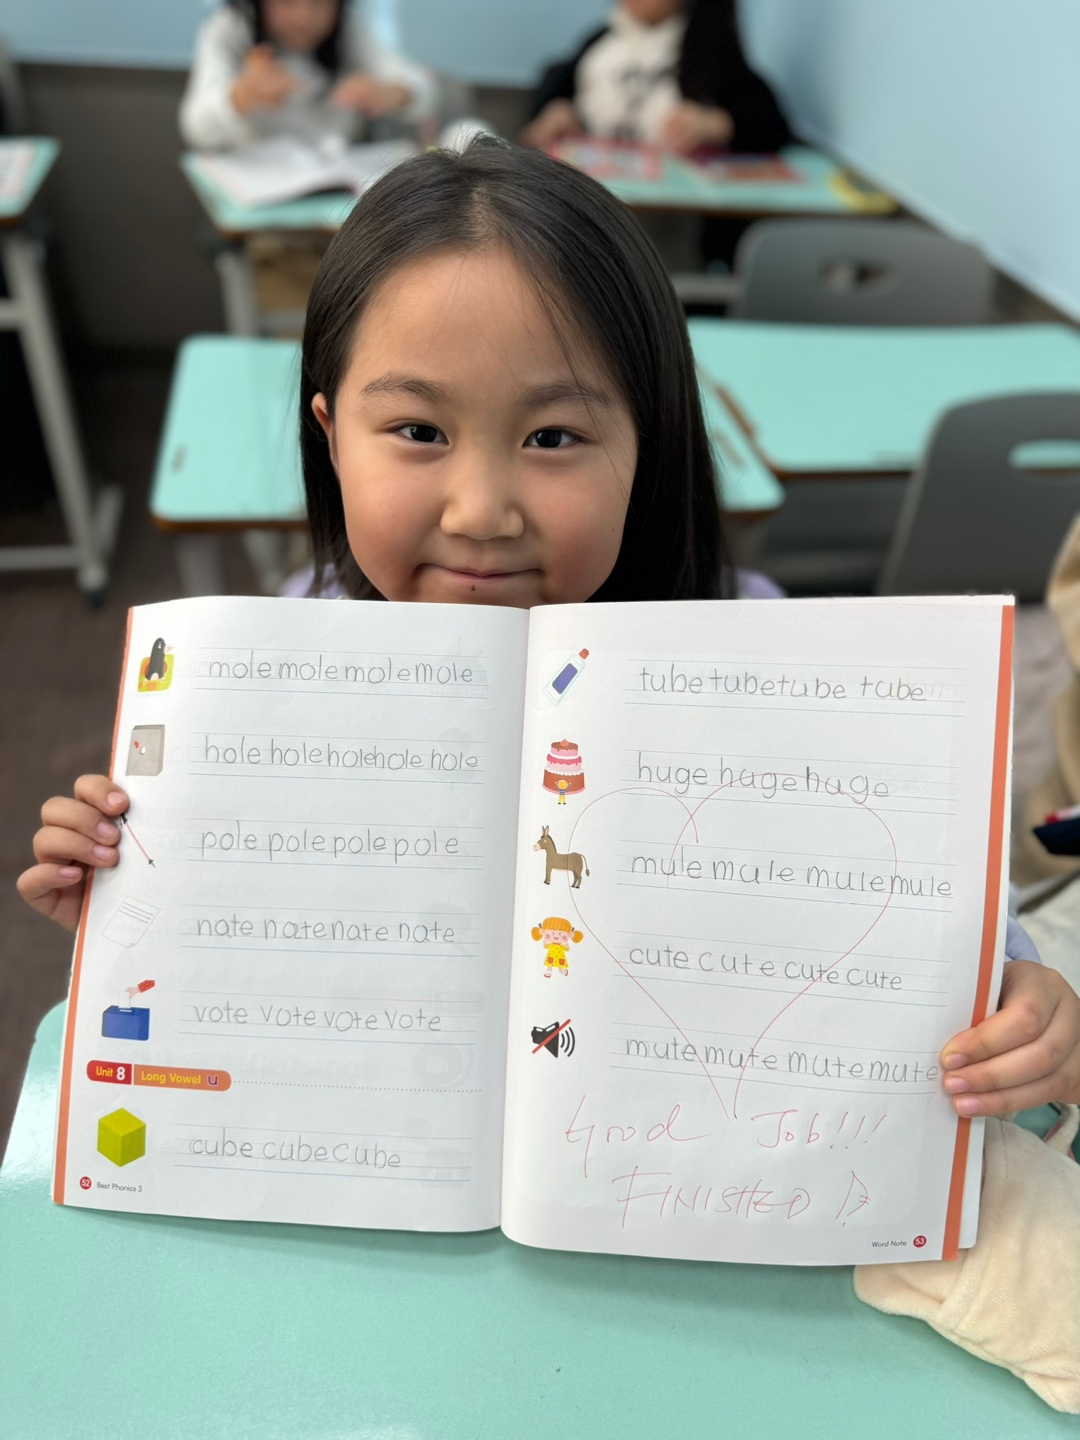 mole mole mole mole
hole hole hole hole hole
pole pole pole pole
nate nate nate nate
vote vote vote vote
Unit 8 Long Vowel u
cube cube cube
52 Best Phonics 3
tube tube tube tube
huge huge huge
mule mule mule mule
cute cute cute cute
mute mute mute mute
Good Job!!!
FINISHED
Word Note 53